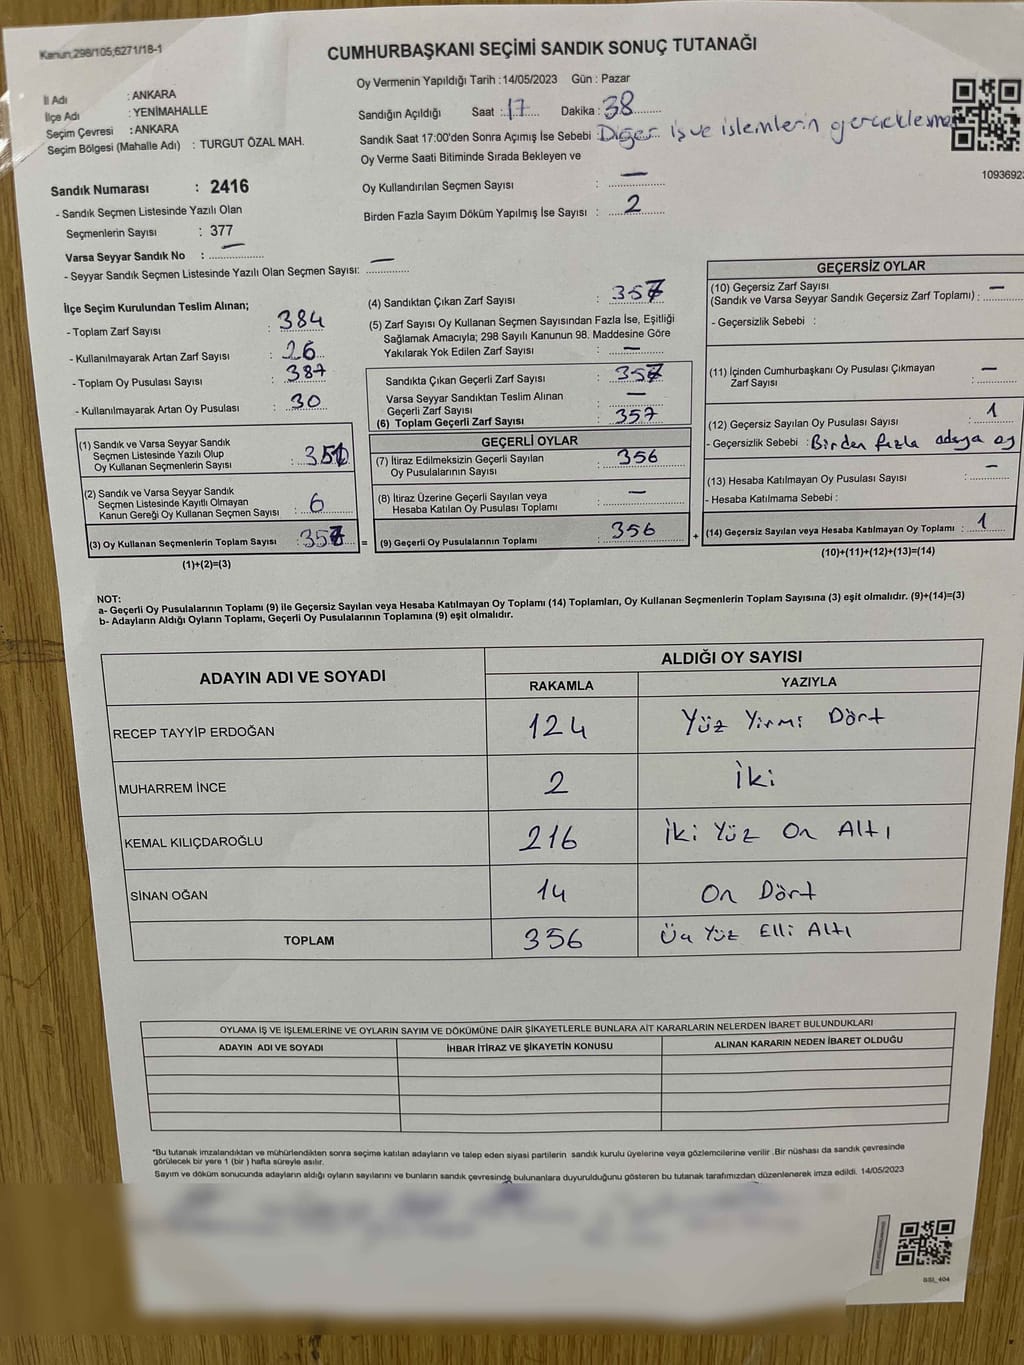 Kanun;298/105;6271/18-1
CUMHURBAŞKANI SEÇİMİ SANDIK SONUÇ TUTANAĞI
İl Adı : ANKARA
İlçe Adı : YENİMAHALLE
Seçim Çevresi : ANKARA
Seçim Bölgesi (Mahalle Adı) : TURGUT ÖZAL MAH.
Oy Vermenin Yapıldığı Tarih :14/05/2023 Gün : Pazar
Sandığın Açıldığı Saat : 17 Dakika : 38
Sandık Saat 17:00'den Sonra Açımış İse Sebebi : Diğer iş ve işlemlerin
Oy Verme Saati Bitiminde Sırada Bekleyen ve
Oy Kullandırılan Seçmen Sayısı : —
Birden Fazla Sayım Döküm Yapılmış İse Sayısı : 2
1093692
Sandık Numarası : 2416
- Sandık Seçmen Listesinde Yazılı Olan
Seçmenlerin Sayısı : 377
Varsa Seyyar Sandık No : —
- Seyyar Sandık Seçmen Listesinde Yazılı Olan Seçmen Sayısı: —
İlçe Seçim Kurulundan Teslim Alınan;
- Toplam Zarf Sayısı : 384
- Kullanılmayarak Artan Zarf Sayısı : 26
- Toplam Oy Pusulası Sayısı : 387
- Kullanılmayarak Artan Oy Pusulası : 30
(1) Sandık ve Varsa Seyyar Sandık
Seçmen Listesinde Yazılı Olup
Oy Kullanan Seçmenlerin Sayısı : 351
(2) Sandık ve Varsa Seyyar Sandık
Seçmen Listesinde Kayıtlı Olmayan
Kanun Gereği Oy Kullanan Seçmen Sayısı : 6
(3) Oy Kullanan Seçmenlerin Toplam Sayısı : 357 =
(1)+(2)=(3)
(4) Sandıktan Çıkan Zarf Sayısı : 357
(5) Zarf Sayısı Oy Kullanan Seçmen Sayısından Fazla İse, Eşitliği
Sağlamak Amacıyla; 298 Sayılı Kanunun 98. Maddesine Göre
Yakılarak Yok Edilen Zarf Sayısı : —
Sandıkta Çıkan Geçerli Zarf Sayısı : 357
Varsa Seyyar Sandıktan Teslim Alınan
Geçerli Zarf Sayısı : —
(6) Toplam Geçerli Zarf Sayısı : 357
GEÇERLİ OYLAR
(7) İtiraz Edilmeksizin Geçerli Sayılan
Oy Pusulalarının Sayısı : 356
(8) İtiraz Üzerine Geçerli Sayılan veya
Hesaba Katılan Oy Pusulası Toplamı : —
(9) Geçerli Oy Pusulalarının Toplamı : 356 +
GEÇERSİZ OYLAR
(10) Geçersiz Zarf Sayısı
(Sandık ve Varsa Seyyar Sandık Geçersiz Zarf Toplamı) : —
- Geçersizlik Sebebi :
(11) İçinden Cumhurbaşkanı Oy Pusulası Çıkmayan
Zarf Sayısı : —
(12) Geçersiz Sayılan Oy Pusulası Sayısı : 1
- Geçersizlik Sebebi : Birden fazla adaya oy
(13) Hesaba Katılmayan Oy Pusulası Sayısı : —
- Hesaba Katılmama Sebebi :
(14) Geçersiz Sayılan veya Hesaba Katılmayan Oy Toplamı : 1
(10)+(11)+(12)+(13)=(14)
NOT:
a- Geçerli Oy Pusulalarının Toplamı (9) ile Geçersiz Sayılan veya Hesaba Katılmayan Oy Toplamı (14) Toplamları, Oy Kullanan Seçmenlerin Toplam Sayısına (3) eşit olmalıdır. (9)+(14)=(3)
b- Adayların Aldığı Oyların Toplamı, Geçerli Oy Pusulalarının Toplamına (9) eşit olmalıdır.
ADAYIN ADI VE SOYADI ALDIĞI OY SAYISI
RAKAMLA YAZIYLA
RECEP TAYYİP ERDOĞAN 124 Yüz Yirmi Dört
MUHARREM İNCE 2 İki
KEMAL KILIÇDAROĞLU 216 İki Yüz On Altı
SİNAN OĞAN 14 On Dört
TOPLAM 356 Üç Yüz Elli Altı
OYLAMA İŞ VE İŞLEMLERİNE VE OYLARIN SAYIM VE DÖKÜMÜNE DAİR ŞİKAYETLERLE BUNLARA AİT KARARLARIN NELERDEN İBARET BULUNDUKLARI
ADAYIN ADI VE SOYADI İHBAR İTİRAZ VE ŞİKAYETİN KONUSU ALINAN KARARIN NEDEN İBARET OLDUĞU
*Bu tutanak imzalandıktan ve mühürlendikten sonra seçime katılan adayların ve talep eden siyasi partilerin sandık kurulu üyelerine veya gözlemcilerine verilir .Bir nüshası da sandık çevresinde
görülecek bir yere 1 (bir ) hafta süreyle asılır.
Sayım ve döküm sonucunda adayların aldığı oyların sayılarını ve bunların sandık çevresinde bulunanlara duyurulduğunu gösteren bu tutanak tarafımızdan düzenlenerek imza edildi. 14/05/2023
SSI_404